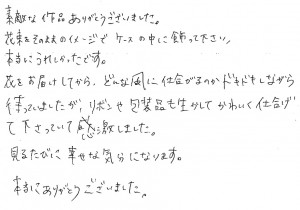 素敵な作品ありがとうございました。
花束をそのままのイメージでケースの中に飾って下さい
本当にうれしかったです。
花をお届けしてから、どんな風に仕合がるのかドキドキしながら
待っていましたが、リボンや包装品も生かしてかわいく仕上げ
て下さっていて感激しました。
見るたびに幸せな気分になります。
本当にありがとうございました。